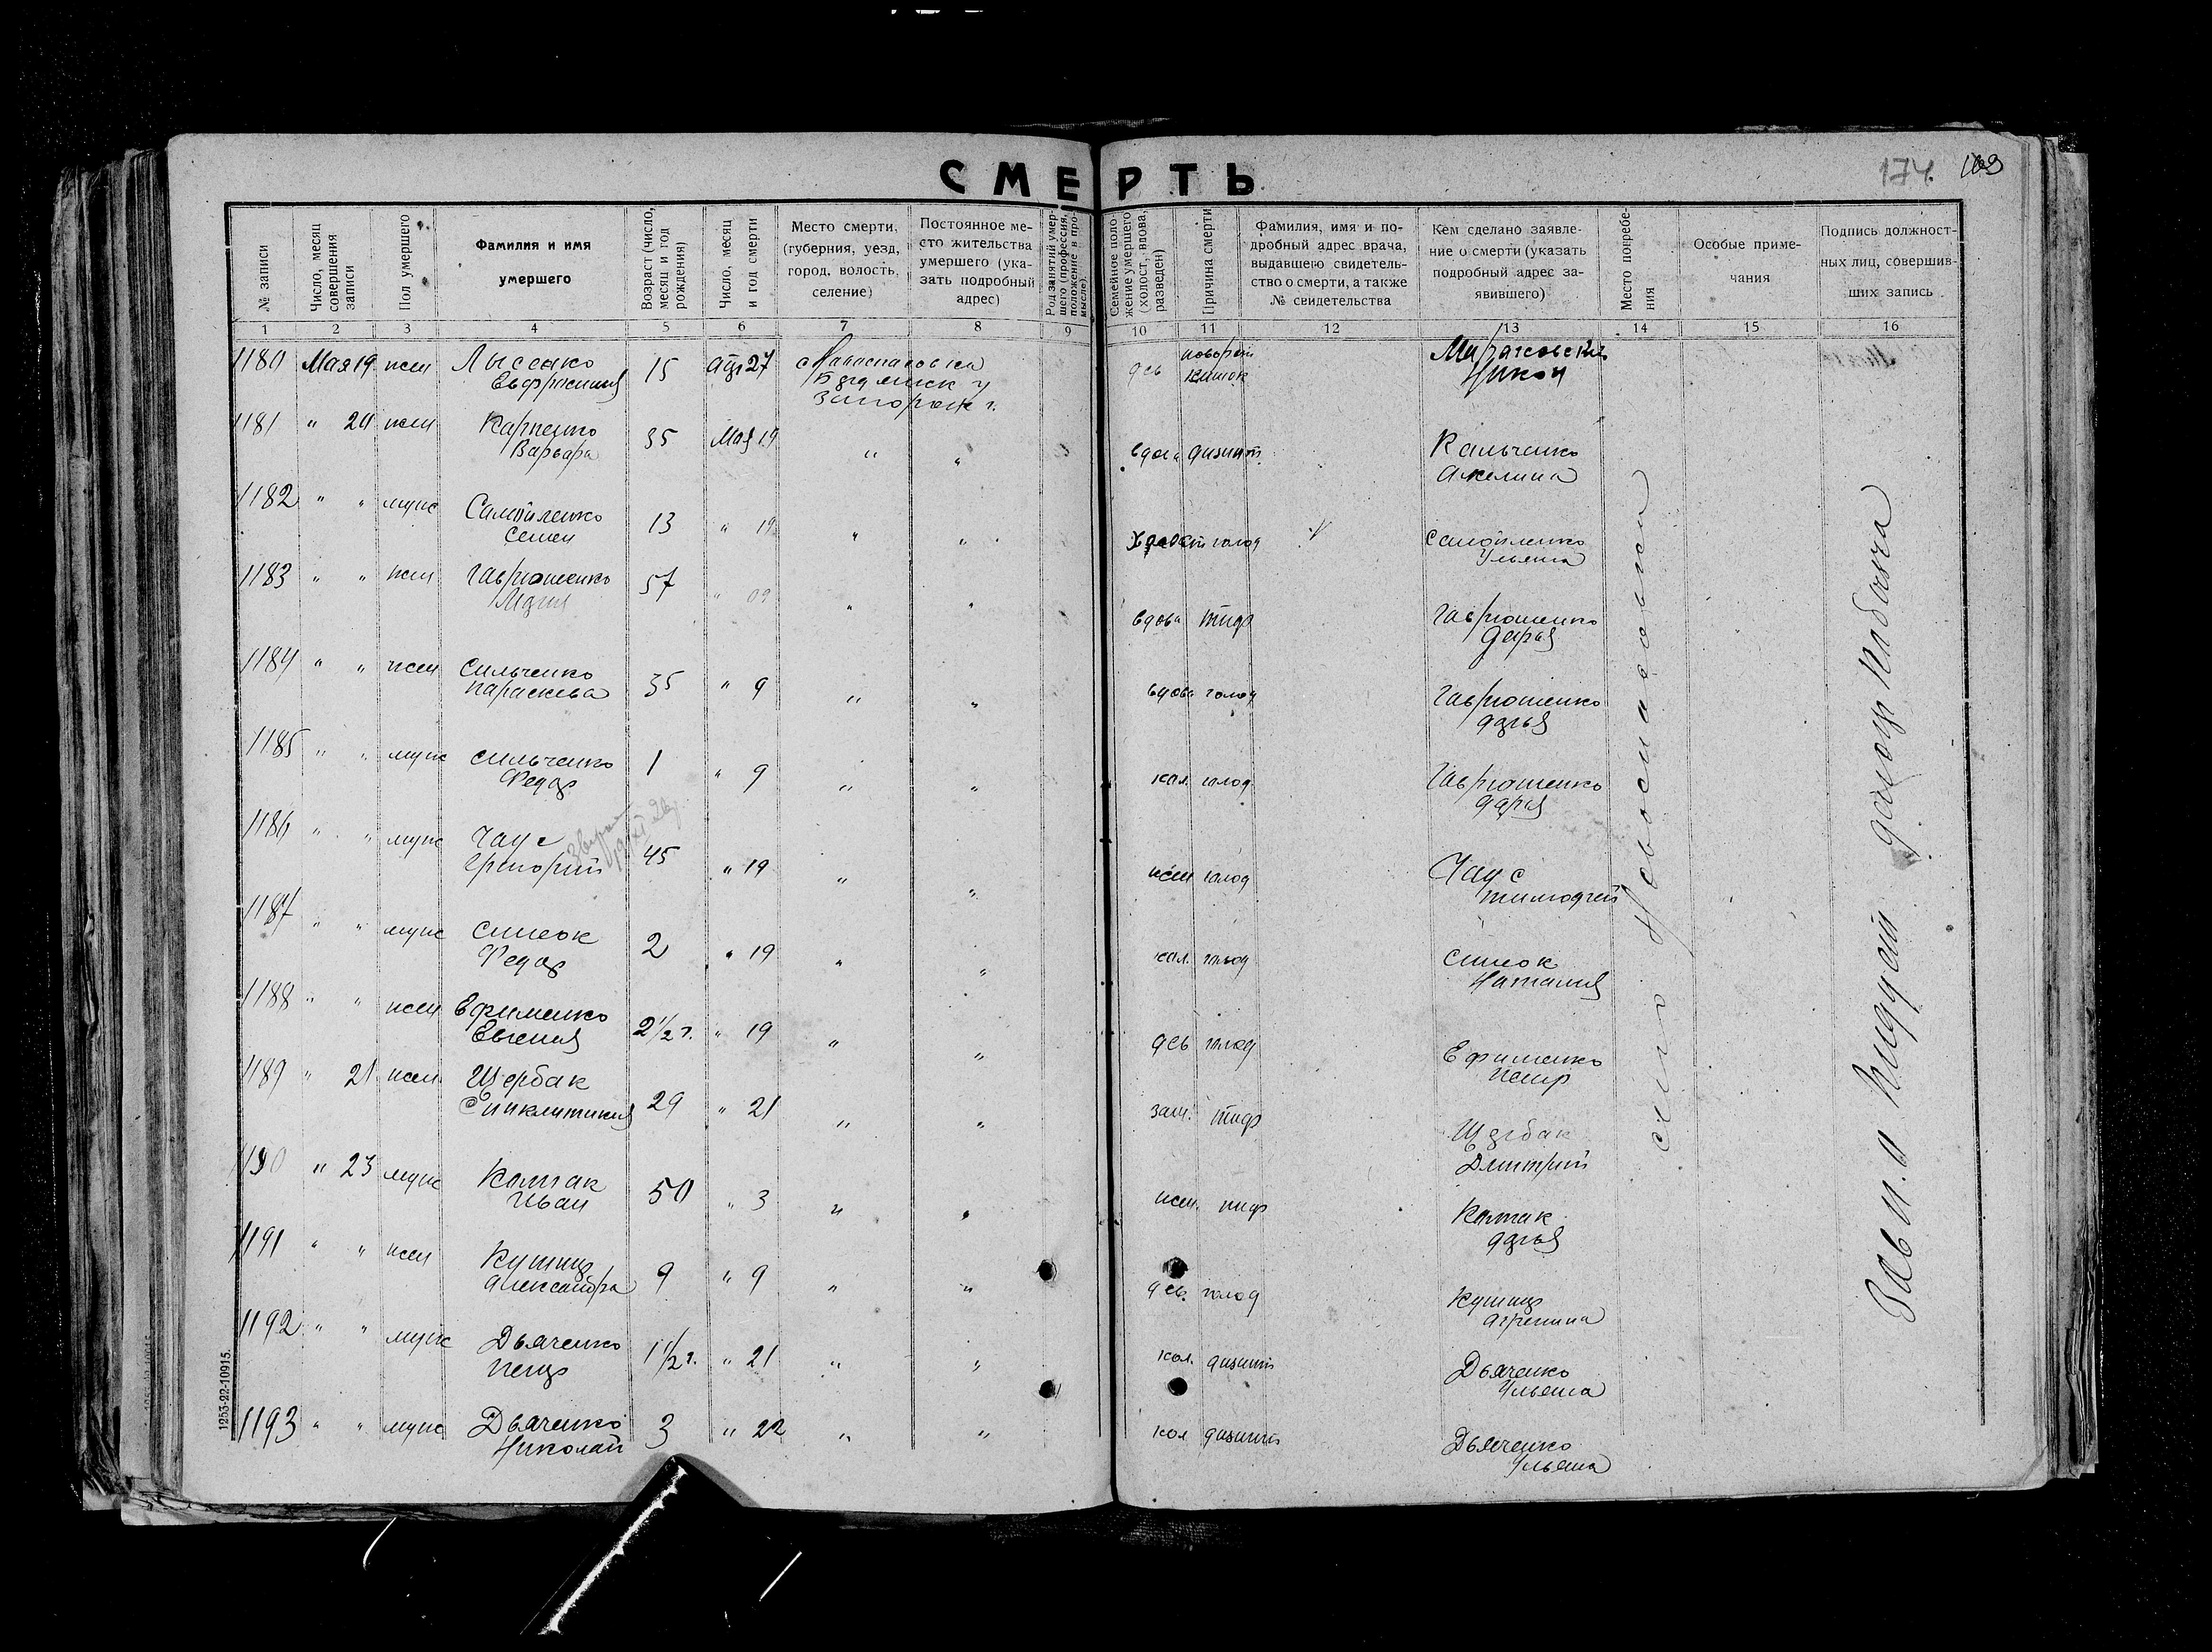 СМЕРТЬ
174. 163
№ записи
Число, месяц совершения записи
Пол умершего
Фамилия и имя умершего
Возраст (число, месяц и год рождения)
Число, месяц и год смерти
Место смерти, (губерния, уезд, город, волость, селение)
Постоянное место жительства умершего (указать подробный адрес)
Род занятий умершего (профессия, положение в промысле).
Семейное положение умершего (холост, вдова, разведен)
Причина смерти
Фамилия, имя и подробный адрес врача, выдавшего свидетельство о смерти, а также № свидетельства
Кем сделано заявление о смерти (указать подробный адрес заявившего)
Место погребения
Особые примечания
Подпись должностных лиц, совершивших запись
1 2 3 4 5 6 7 8 9 10 11 12 13 14 15 16
1180 Мая 19 жен Лысенко 15 Апр 27
Евфросиния дев Никон
Запорож г.
1181 " 20 жен Карпенко 35 Мая 19 " " вдова дизинт. Кальченко
Варвара Акелина
1182 " " муж Самойленко 13 " 19 " " холост голод Самойленко
Семен Ульяна
1183 " " жен Гаврюшенко 57 " " " вдова тиф Гаврюшенко
Дарья
1184 " " жен Сильченко 35 " 9 " " вдова голод Гаврюшенко
Параскева Дарья
1185 " " муж Сильченко 1 " 9 " " хол. голод Гаврюшенко
Федор Дарья
1186 " " муж Чаус 45 " 19 " " жен голод Чаус
Григорий Тимофей
1187 " " муж Симок 2 " 19 " " хол. голод Симок
Федор Наталия
1188 " " жен Ефименко 2 1/2 г. " 19 " " дев голод Ефименко
Евгения Петр
1189 " 21 жен Щербак 29 " 21 " " зам. тиф Щербак
Синклитикия Дмитрий
1190 " 23 муж Колпак 50 " 3 " " жен. тиф Колпак
Иван Дарья
1191 " " жен Кушнир 9 " 9 " " дев. голод Кушнир
Александра Агрепина
1192 " " муж Дьяченко 1 1/2 г. " 21 " " хол. дизинт Дьяченко
Петр Ульяна
1193 " " муж Дьяченко 3 " 22 " " хол дизинт Дьяченко
Николай Ульяна
село Новоспасовка
Зав. п.
1253-22-10915.